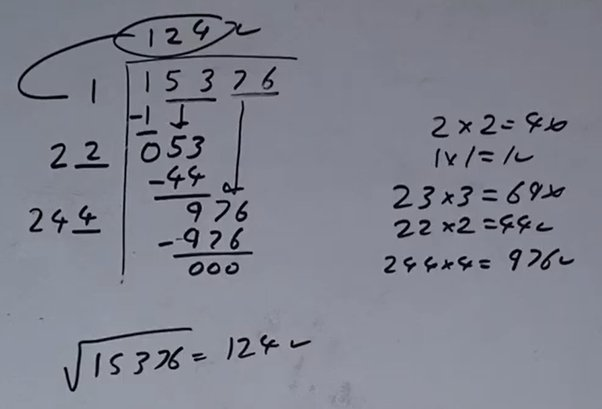 124
1 1 53 76
-1
22 053
-44
244 976
-976
000
2×2=4×
1×1=1✓
23×3=69×
22×2=44✓
244×4=976✓
√15376=124✓